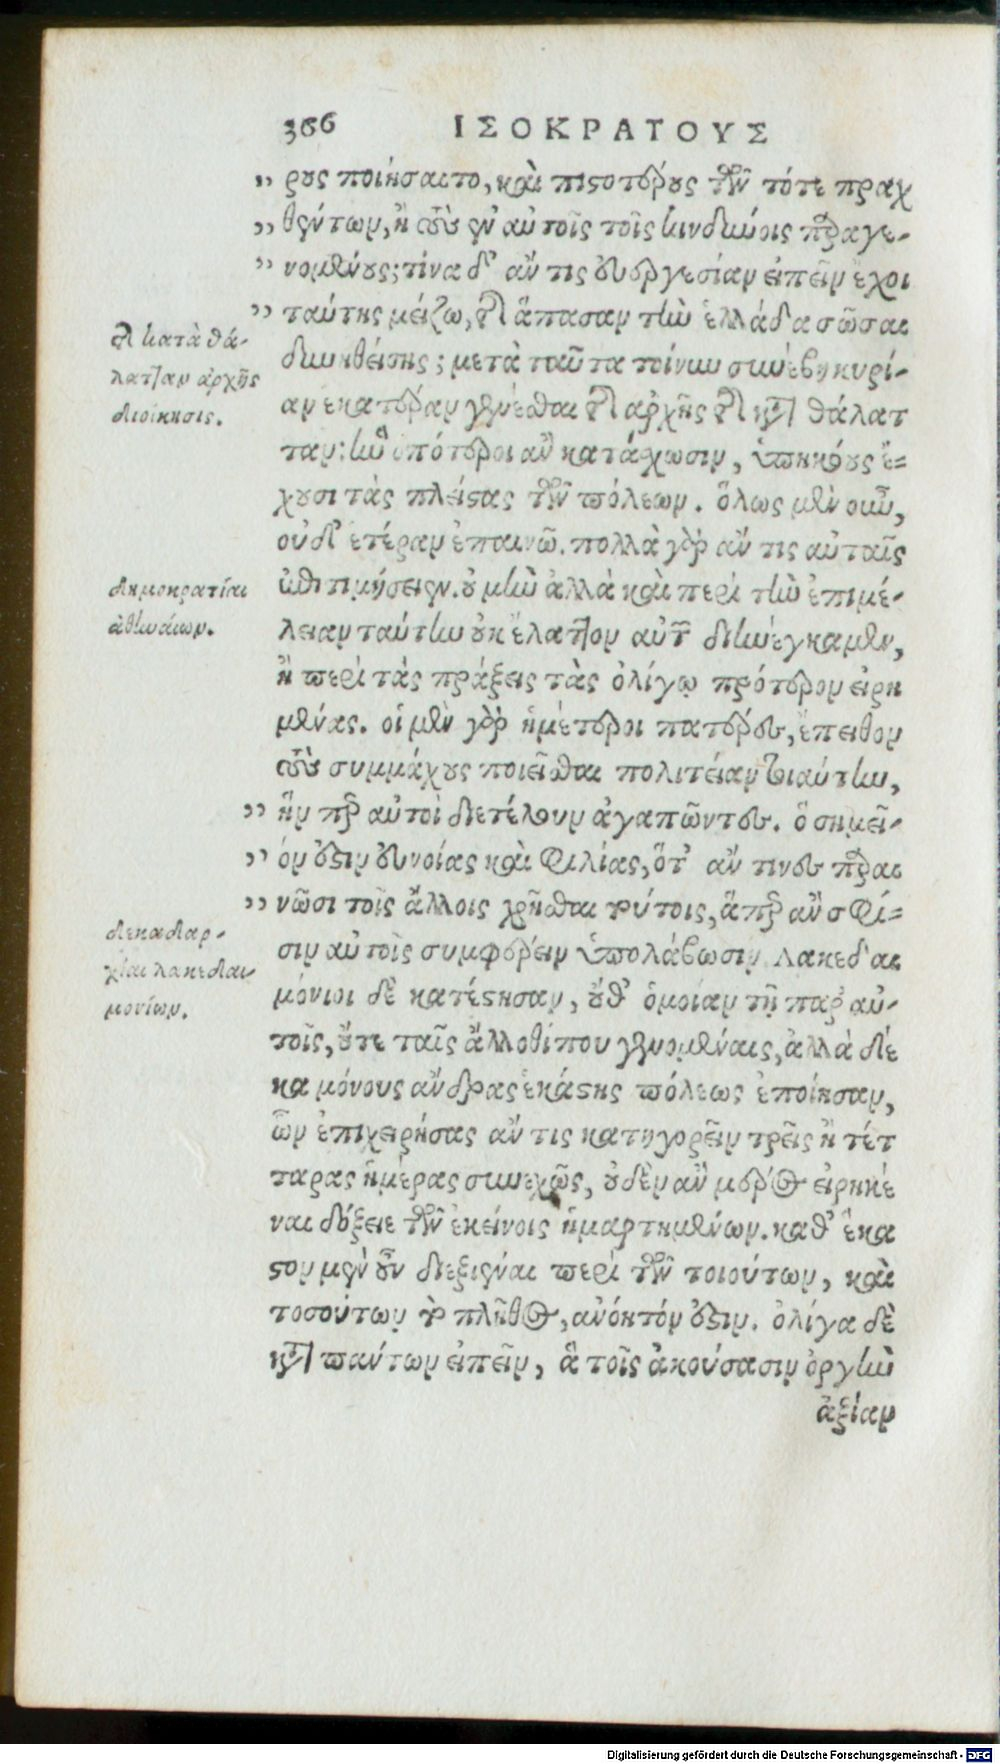 366 ΙΣΟΚΡΑΤΟΥΣ
„ ρους ποιήσαιτο, καὶ πιστοτέρους τῶν τότε πραχ
„ θέντων, ἢ τοὺς ἐν αὐτοῖς τοῖς κινδύνοις παραγε-
„ νομένους; τίνα δ' ἄν τις εὐεργεσίαν εἰπεῖν ἔχοι
„ ταύτης μείζω, τῆς ἅπασαν τὴν ἑλλάδα σῶσαι
δυνηθείσης; μετὰ ταῦτα τοίνυν συνέβη κυρί-
αν ἑκατέραν γενέσθαι τῆς ἀρχῆς τῆς κατὰ θάλατ
ταν· ἣν ὁπότεροι ἂν κατάσχωσιν, ὑπηκόους ἔ-
χουσι τὰς πλείστας τῶν πόλεων. ὅλως μὲν οὖν,
οὐδ' ετέραν ἐπαινῶ. πολλὰ γὰρ ἄν τις αὐταῖς
ἐπιτιμήσειεν. οὐ μὴν ἀλλὰ καὶ περὶ τὴν ἐπιμέ-
λειαν ταύτην οὐκ ἔλαττον αὐτῶν διηνέγκαμεν,
ἢ περὶ τὰς πράξεις τὰς ὀλίγῳ πρότερον εἰρη
μένας. οἱ μὲν γὰρ ἡμέτεροι πατέρες, ἔπειθον
τοὺς συμμάχους ποιεῖσθαι πολιτείαν τοιαύτην,
„ ἥν περ αὐτοὶ διετέλουν ἀγαπῶντες. ὃ σημεῖ-
„ όν ἐστιν εὐνοίας καὶ φιλίας, ὅτ' ἄν τινες παραι
„ νῶσι τοῖς ἄλλοις χρῆσθαι τούτοις, ἅπερ ἂν σφί-
σιν αὐτοῖς συμφέρειν ὑπολάβωσιν. Λακεδαι
μόνιοι δὲ κατέστησαν, οὔθ' ὁμοίαν τῇ παρ' αὐ-
τοῖς, οὔτε ταῖς ἄλλοθί που γενομέναις, ἀλλὰ δέ
κα μόνους ἄνδρας ἑκάστης πόλεως ἐποίησαν,
ὧν ἐπιχειρήσας ἄν τις κατηγορεῖν τρεῖς ἢ τέτ
ταρας ἡμέρας συνεχῶς, οὐδὲν ἂν μέρος εἰρηκέ
ναι δόξειε τῶν ἐκείνοις ἡμαρτημένων. καθ' ἕκα
στον μὲν οὖν διεξιέναι περὶ τῶν τοιούτων, καὶ
τοσούτων τὸ πλῆθος, ἀνόητόν ἐστιν. ὀλίγα δὲ
κατὰ πάντων εἰπεῖν, ἃ τοῖς ἀκούσασιν ὀργὴν
ἀξίαν
τῆς κατὰ θά-
λατταν ἀρχῆς
διοίκησις.
δημοκρατίαι
ἀθηναίων.
δεκαδαρ-
χίαι λακεδαι-
μονίων.
Digitalisierung gefördert durch die Deutsche Forschungsgemeinschaft - DFG